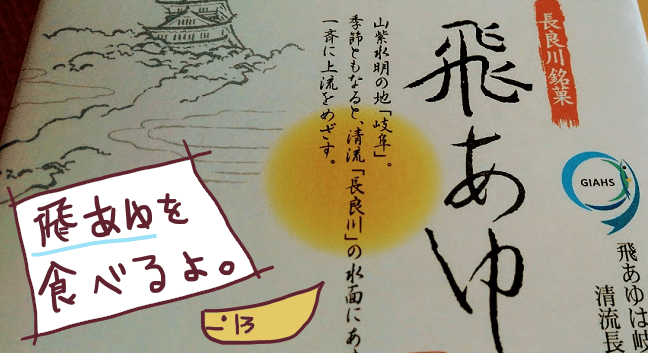 長良川銘菓
飛あゆ
山紫水明の地「岐阜」。
季節ともなると、清流「長良川」の水面にあ
一斉に上流をめざす。
GIAHS
飛あゆは岐
清流長
飛あゆを
食べるよ。